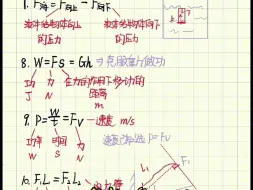 7. F浮 = F向上 - F向下
液体给物体向上的压力
液体给物体向下的压力
8. W = Fs = Gh ⇒ 克服重力做功
功 力 在力的作用下移动的距离
J N m
9. P = W/t = Fv → 速度 m/s
功率 时间 P = Fv
W S N
10. F₁L₁ = F₂L₂
L₁ F₁